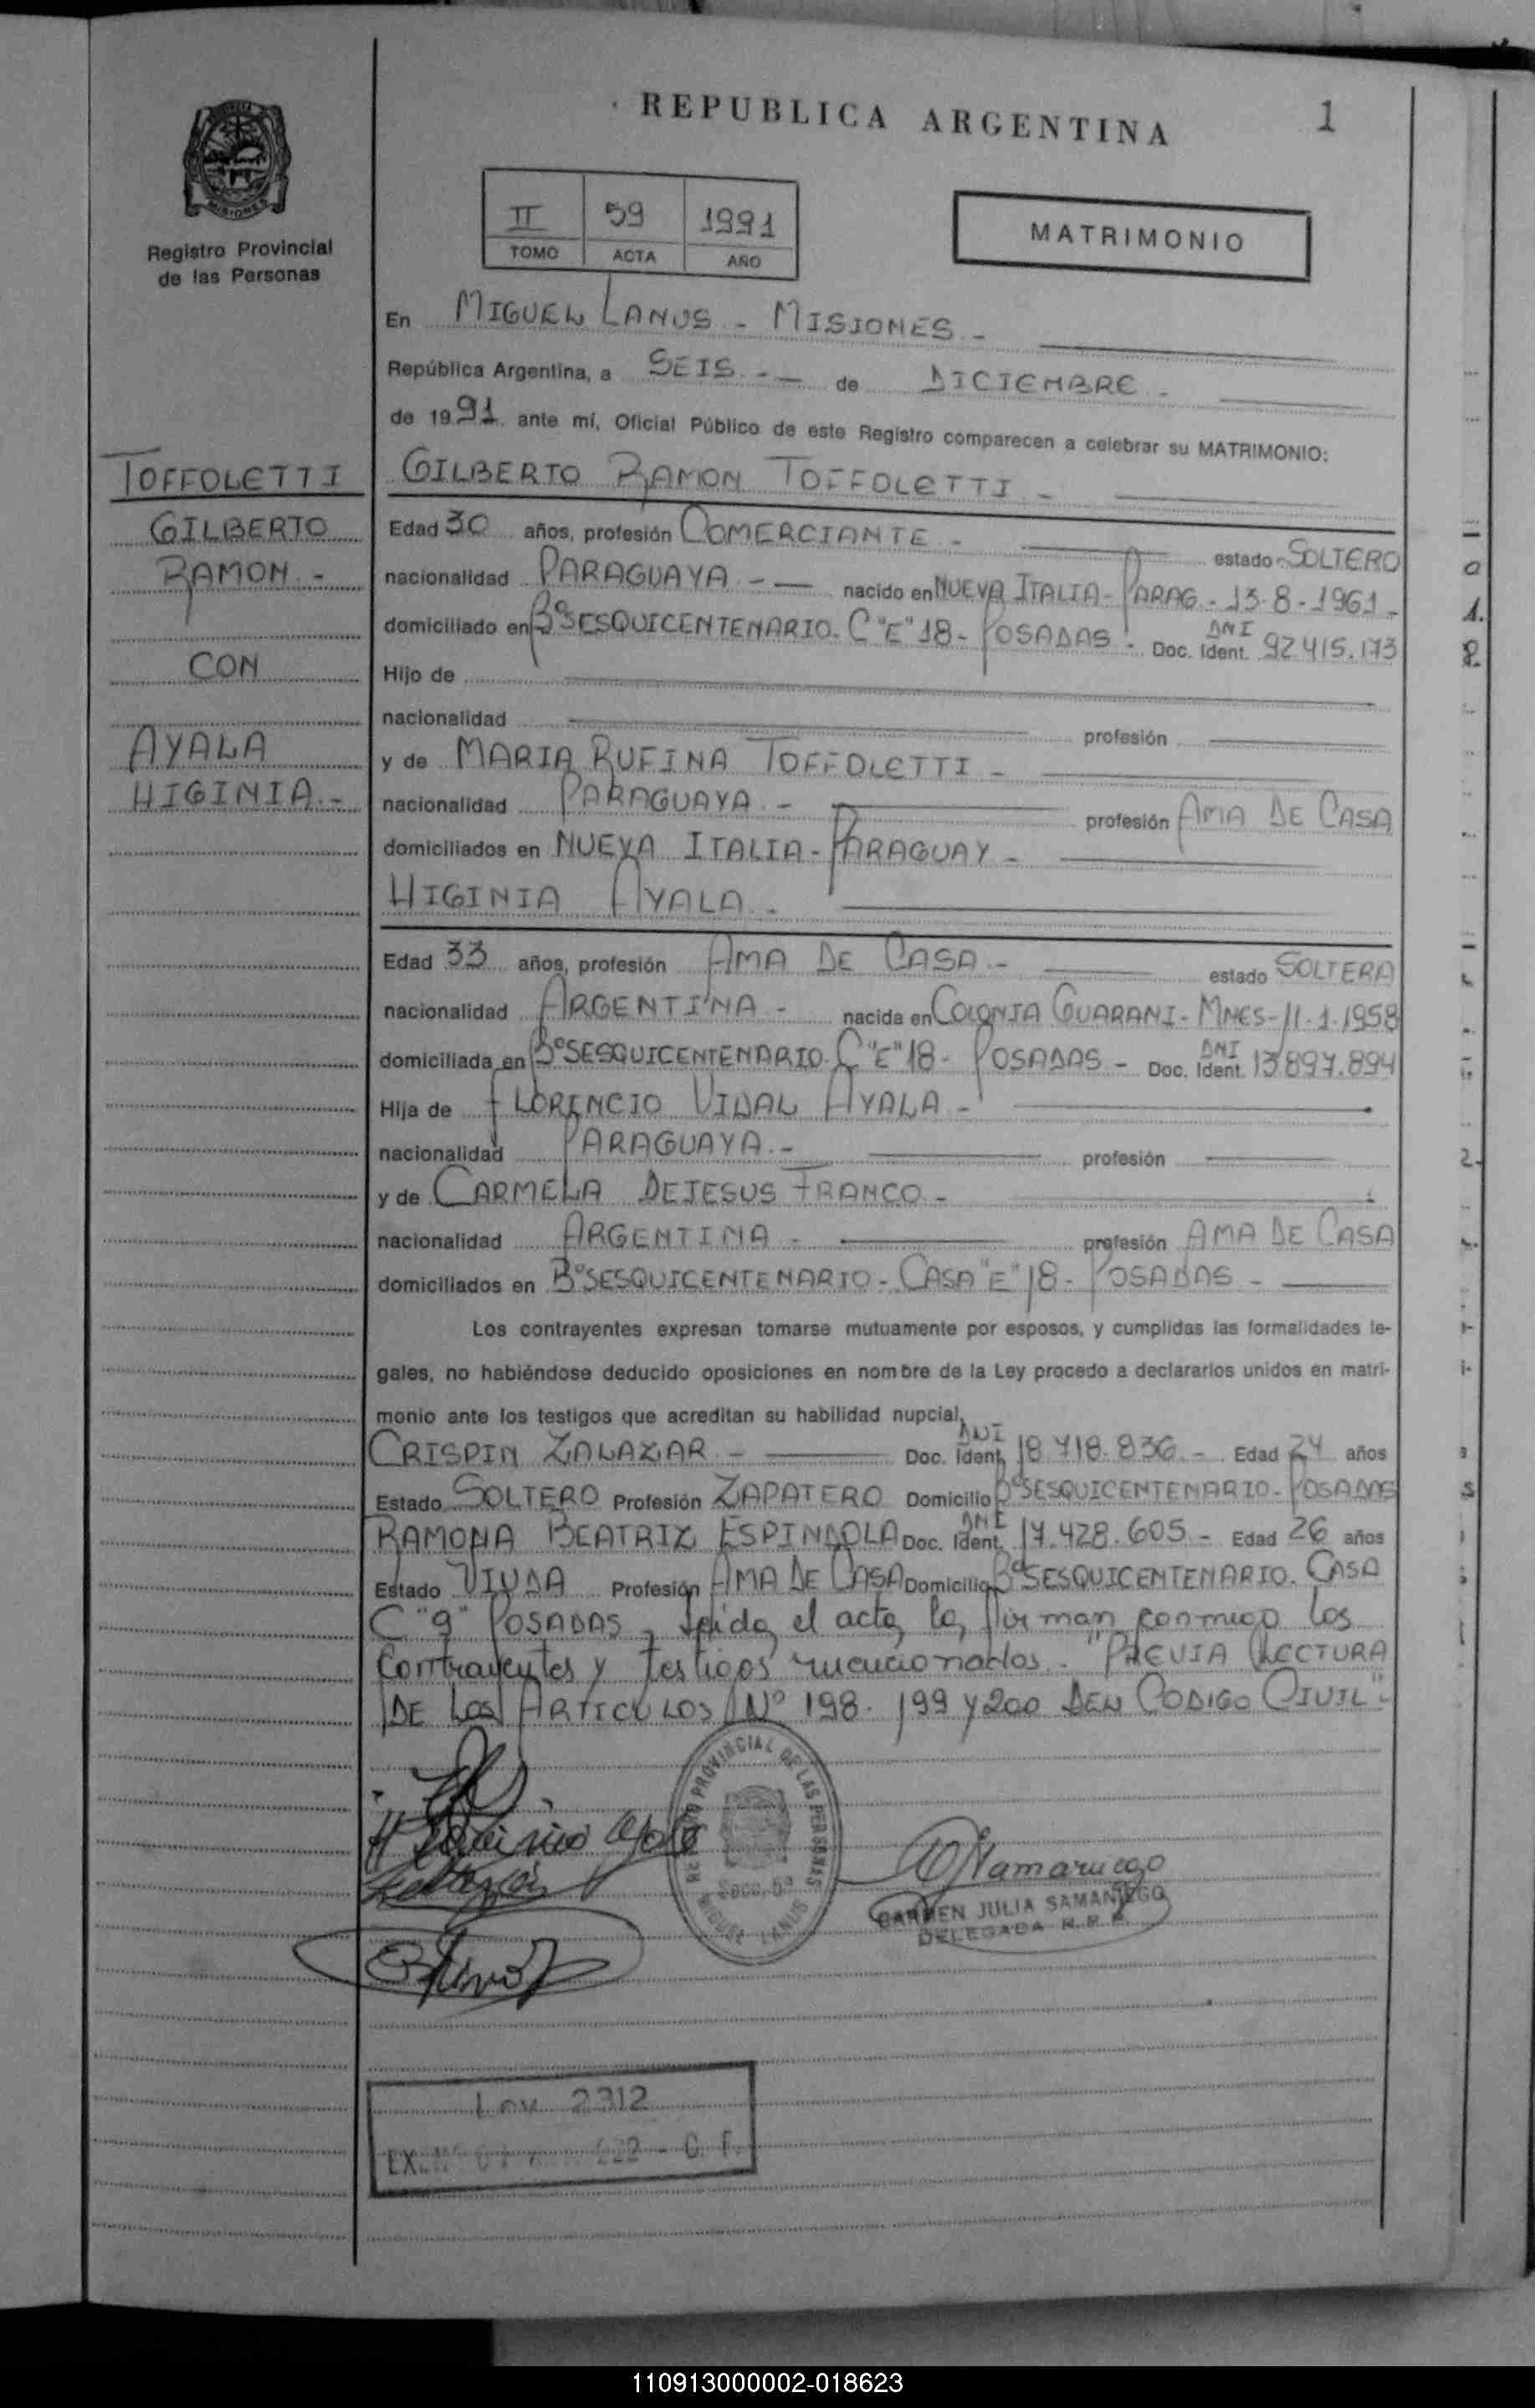 REPUBLICA ARGENTINA
1
MISIONES
Registro Provincial
de las Personas
II 59 1991
TOMO ACTA AÑO
MATRIMONIO
En MIGUEL LANUS - MISIONES -
República Argentina, a SEIS - - de DICIEMBRE -
de 1991 ante mí, Oficial Público de este Registro comparecen a celebrar su MATRIMONIO:
TOFFOLETTI
GILBERTO
RAMON -
CON
AYALA
HIGINIA -
GILBERTO RAMON TOFFOLETTI -
Edad 30 años, profesión COMERCIANTE - estado SOLTERO
nacionalidad PARAGUAYA - - nacido en NUEVA ITALIA - PARAG - 13-8-1961 -
domiciliado en Bº SESQUICENTENARIO. C "E" 18 - POSADAS - Doc. Ident. DNI 92.415.173
Hijo de
nacionalidad profesión
y de MARIA RUFINA TOFFOLETTI -
nacionalidad PARAGUAYA - profesión AMA DE CASA
domiciliados en NUEVA ITALIA - PARAGUAY -
HIGINIA AYALA -
Edad 33 años, profesión AMA DE CASA - estado SOLTERA
nacionalidad ARGENTINA - nacida en COLONIA GUARANI - MNES - 11.1.1958
domiciliada en Bº SESQUICENTENARIO. C "E" 18 - POSADAS - Doc. Ident. DNI 13.897.894
Hija de FLORENCIO VIDAL AYALA -
nacionalidad PARAGUAYA - profesión
y de CARMELA DEJESUS FRANCO -
nacionalidad ARGENTINA - profesión AMA DE CASA
domiciliados en Bº SESQUICENTENARIO - CASA "E" 18 - POSADAS -
Los contrayentes expresan tomarse mutuamente por esposos, y cumplidas las formalidades le-
gales, no habiéndose deducido oposiciones en nombre de la Ley procedo a declararlos unidos en matri-
monio ante los testigos que acreditan su habilidad nupcial,
CRISPIN ZALAZAR - Doc. Ident. DNI 18.718.836 - Edad 24 años
Estado SOLTERO Profesión ZAPATERO Domicilio Bº SESQUICENTENARIO - POSADAS
RAMONA BEATRIZ ESPINDOLA Doc. Ident. DNI 17.428.605 - Edad 26 años
Estado VIUDA Profesión AMA DE CASA Domicilio Bº SESQUICENTENARIO. CASA
C "9" POSADAS - Leida el acta, la firman conmigo los
Contrayentes y testigos mencionados. "PREVIA LECTURA
DE LOS ARTICULOS Nº 198 - 199 Y 200 DEL CODIGO CIVIL" -
REGISTRO PROVINCIAL DE LAS PERSONAS
MIGUEL LANUS
CARMEN JULIA SAMANIEGO
DELEGADA R.P.P.
Ley 2312
110913000002-018623